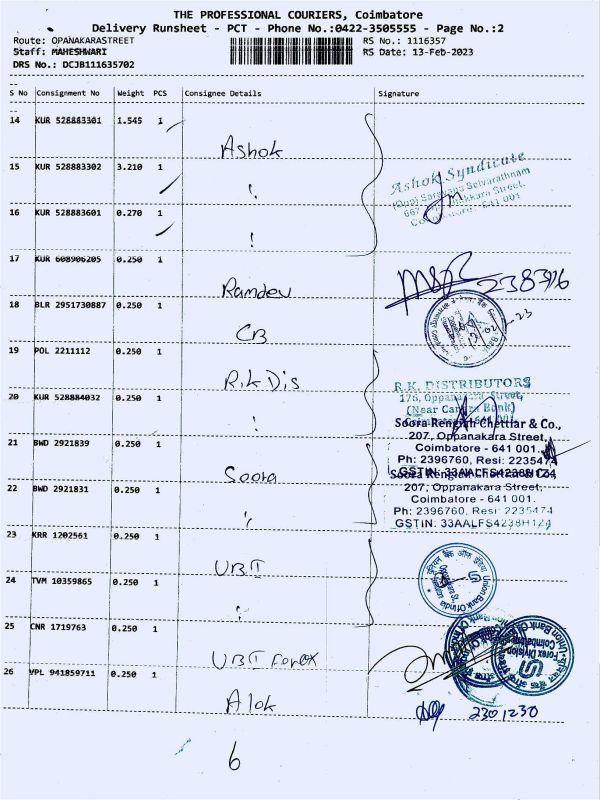 THE PROFESSIONAL COURIERS, Coimbatore
Delivery Runsheet - PCT - Phone No.:0422-3505555 - Page No.:2
Route: OPANAKARASTREET RS No.: 1116357
Staff: MAHESHWARI RS Date: 13-Feb-2023
DRS No.: DCJB111635702
S No Consignment No Weight PCS Consignee Details Signature
14 KUR 528883301 1.545 1
Ashok
15 KUR 528883302 3.210 1
Ashok Syndicate
Saravana Selvarathnam
16 KUR 528883601 0.270 1
641 001
17 KUR 608906205 0.250 1
Ramdev 238376
18 BLR 2951730887 0.250 1
CB
19 POL 2211112 0.250 1
R.k Dis
R.K. DISTRIBUTORS
176, Oppanakara Street,
(Near Canara Bank)
20 KUR 528884032 0.250 1
Soora Rengiah Chettiar & Co.,
207, Oppanakara Street,
Coimbatore - 641 001.
Ph: 2396760, Resi: 2235474
GSTIN: 33AALFS4238H1Z4
21 BWD 2921839 0.250 1
Soora
Soora Rengiah Chettiar & Co.,
207, Oppanakara Street,
Coimbatore - 641 001.
Ph: 2396760, Resi: 2235474
GSTIN: 33AALFS4238H1Z4
22 BWD 2921831 0.250 1
23 KRR 1202561 0.250 1
UBI
Union Bank Of India
24 TVM 10359865 0.250 1
25 CNR 1719763 0.250 1
UBI Forex
Union Bank Of India
Forex Division
Coimbatore
26 VPL 941859711 0.250 1
Alok
2301230
6